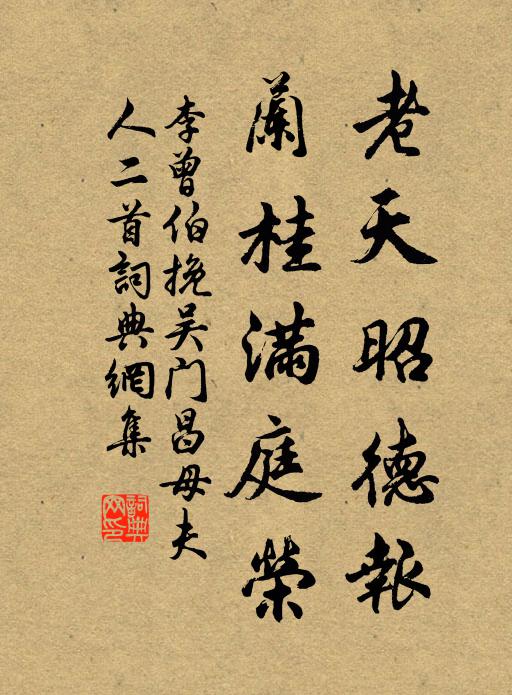 老天昭德報
蘭桂滿庭榮
李曾伯挽吴门昌母夫
人二首詞典網集
詞典
网印